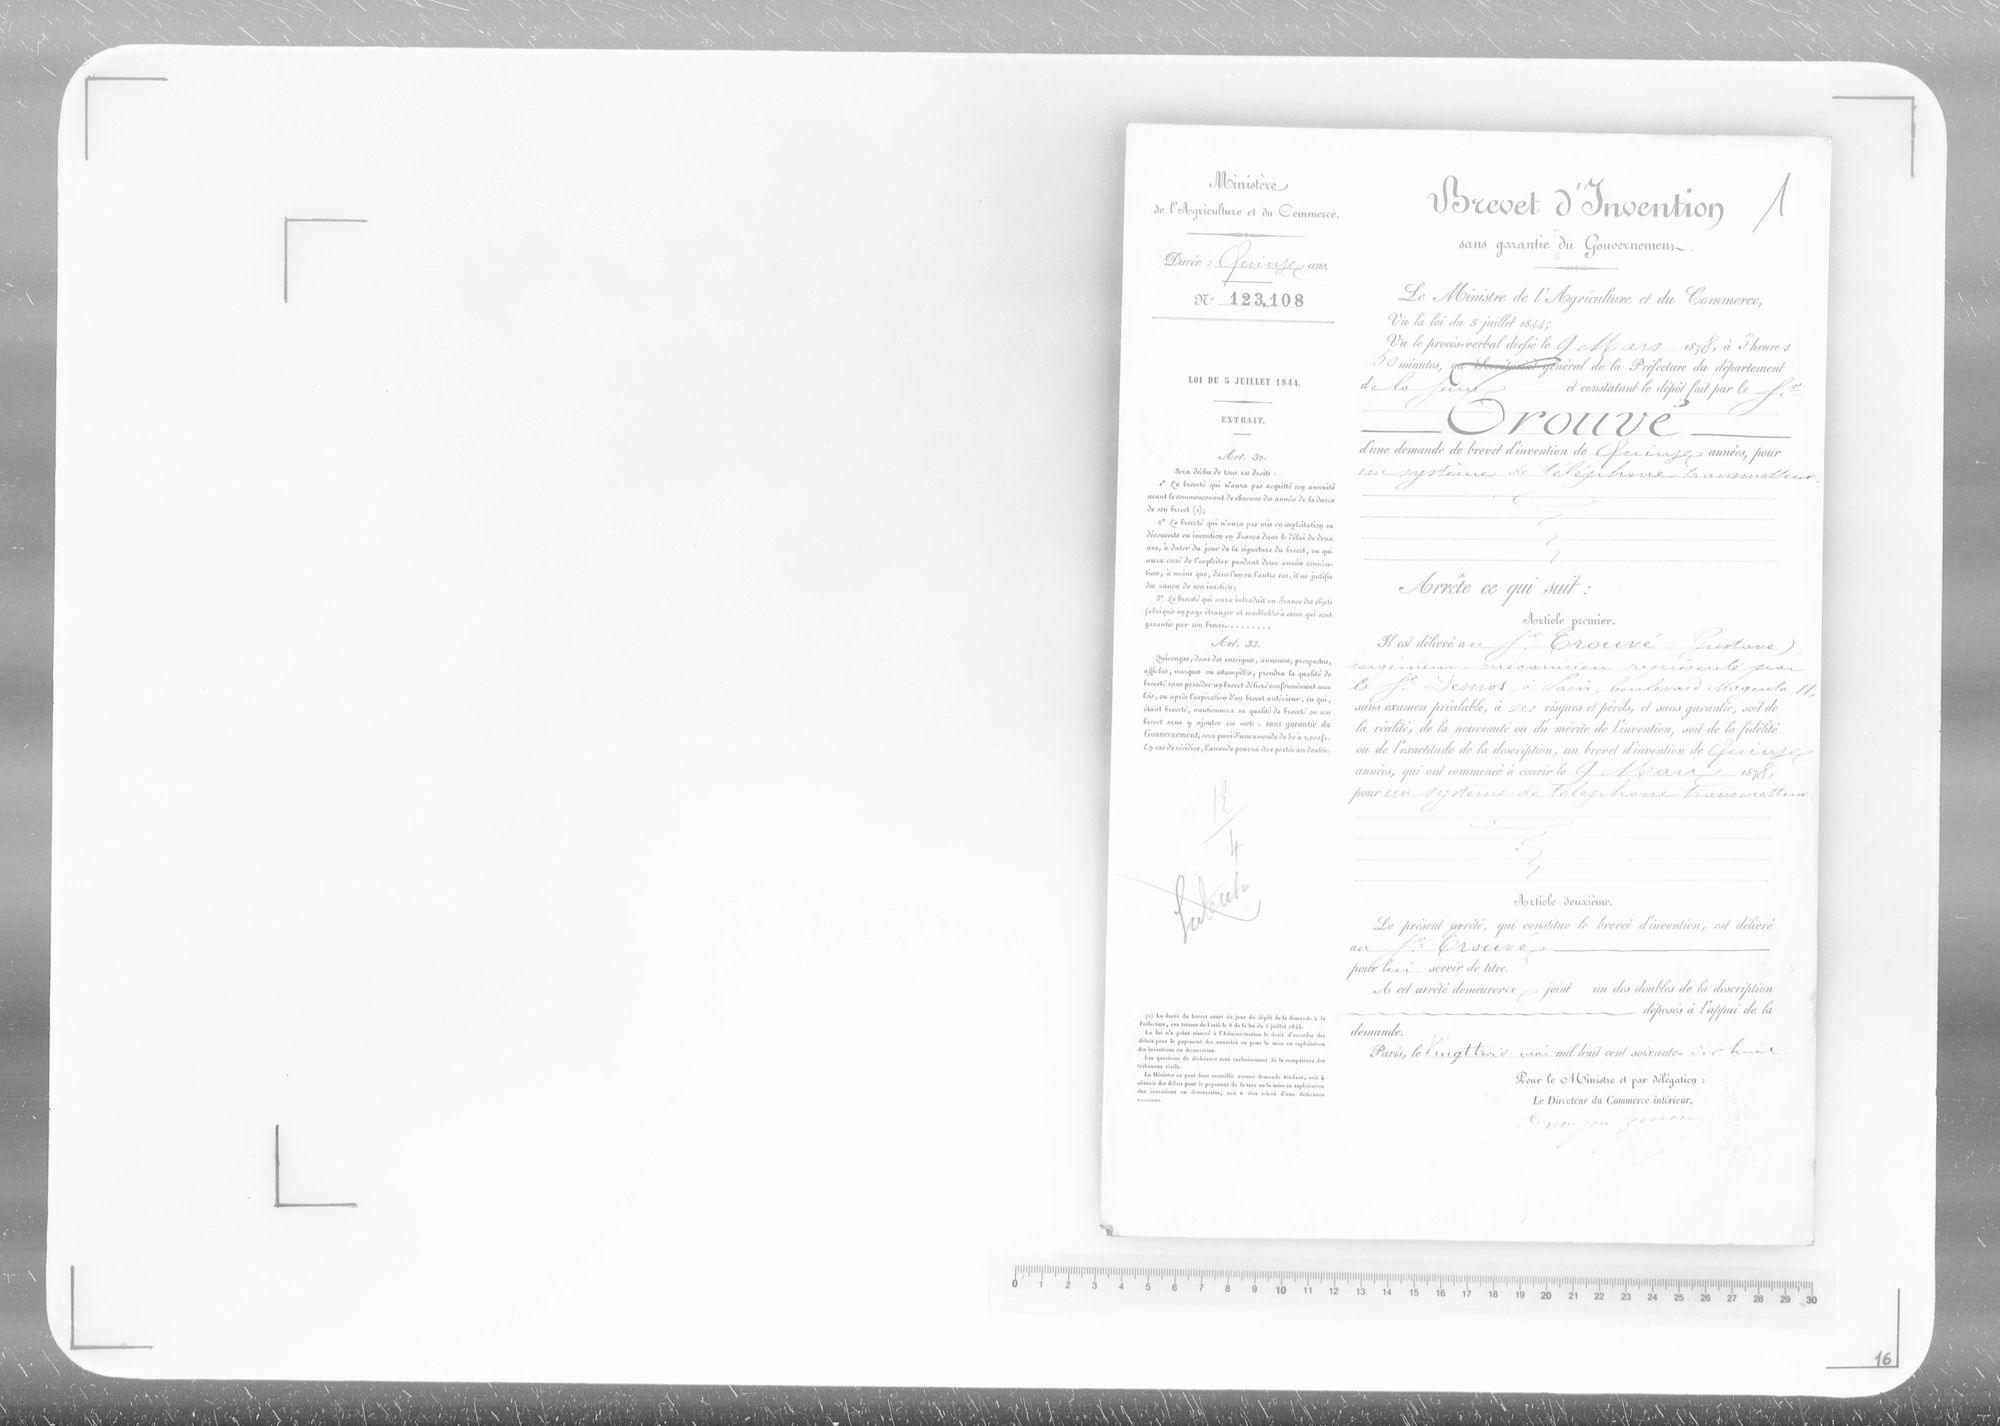 Ministère
de l'Agriculture et du Commerce.
Durée : Quinze ans.
N° 123,108
LOI DU 5 JUILLET 1844.
EXTRAIT.
Art. 32.
Sera déchu de tous ses droits :
1° Le breveté qui n'aura pas acquitté son annuité
avant le commencement de chacune des années de la durée
de son brevet (1);
2° Le breveté qui n'aura pas mis en exploitation sa
découverte ou invention en France dans le délai de deux
ans, à dater du jour de la signature du brevet, ou qui
aura cessé de l'exploiter pendant deux années consécu-
tives, à moins que, dans l'un ou l'autre cas, il ne justifie
des causes de son inaction;
3° Le breveté qui aura introduit en France des objets
fabriqués en pays étranger et semblables à ceux qui sont
garantis par son brevet........
Art. 33.
Quiconque, dans des enseignes, annonces, prospectus,
affiches, marques ou estampilles, prendra la qualité de
breveté sans posséder un brevet délivré conformément aux
lois, ou après l'expiration d'un brevet antérieur, ou qui,
étant breveté, mentionnera sa qualité de breveté ou son
brevet sans y ajouter ces mots : sans garantie du
Gouvernement, sera puni d'une amende de 50 à 1,000 fr.
En cas de récidive, l'amende pourra être portée au double.
12
4
(1) La durée du brevet court du jour du dépôt de la demande à la
Préfecture, aux termes de l'article 8 de la loi du 5 juillet 1844.
La loi n'a point réservé à l'Administration le droit d'accorder des
délais pour le payement des annuités ou pour la mise en exploitation
des inventions ou découvertes.
Les questions de déchéance sont exclusivement de la compétence des
tribunaux civils.
Le Ministre ne peut donc accueillir aucune demande tendant, soit à
obtenir des délais pour le payement de la taxe ou la mise en exploitation
des inventions ou découvertes, soit à être relevé d'une déchéance
encourue.
Brevet d'Invention
1
sans garantie du Gouvernement.
Le Ministre de l'Agriculture et du Commerce,
Vu la loi du 5 juillet 1844;
Vu le procès-verbal dressé le 9 Mars 1878, à 3 heures
50 minutes, au Secrétariat général de la Préfecture du département
de la Seine et constatant le dépôt fait par le Sr
Trouvé
d'une demande de brevet d'invention de Quinze années, pour
un système de téléphone transmetteur.
Arrête ce qui suit :
Article premier.
Il est délivré au Sr Trouvé (Gustave)
ingénieur mécanicien représenté par
le Sr Desnos, à Paris, boulevard Magenta, 11,
sans examen préalable, à ses risques et périls, et sans garantie, soit de
la réalité, de la nouveauté ou du mérite de l'invention, soit de la fidélité
ou de l'exactitude de la description, un brevet d'invention de Quinze
années, qui ont commencé à courir le 9 Mars 1878,
pour un système de téléphone transmetteur.
Article deuxième.
Le présent arrêté, qui constitue le brevet d'invention, est délivré
au Sr Trouvé
pour lui servir de titre.
A cet arrêté demeurera joint un des doubles de la description
déposés à l'appui de la
demande.
Paris, le Vingt trois mai mil huit cent soixante-dix huit
Pour le Ministre et par délégation :
Le Directeur du Commerce intérieur,
0 1 2 3 4 5 6 7 8 9 10 11 12 13 14 15 16 17 18 19 20 21 22 23 24 25 26 27 28 29 30
16